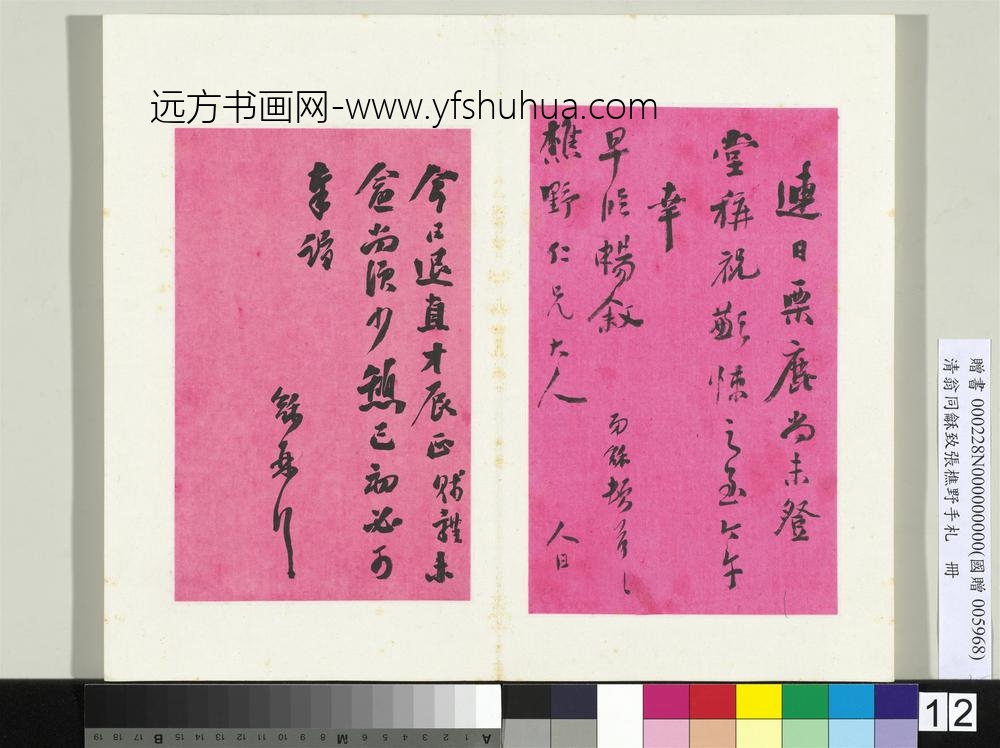 远方书画网-www.yfshuhua.com
連日栗鹿尚未登
堂稱祝歉悚之至今午
幸
早臨暢敘
樵野仁兄大人
龢頓首
人日
今日退直才辰正賤體未
愈尚須少憩巳初必可
奉詣
龢再行
贈書 000228N000000000(國贈 005968)
清翁同龢致張樵野手札 冊
12
A 1 2 3 4 5 6 M 8 9 10 11 12 13 14 15 B 17 18 19